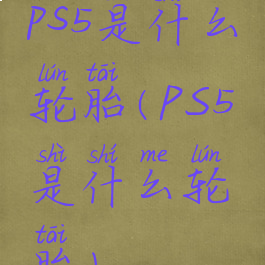 PS5是什么
lún tāi
轮胎(PS5
shì shí me lún
是什么轮
tāi
胎)